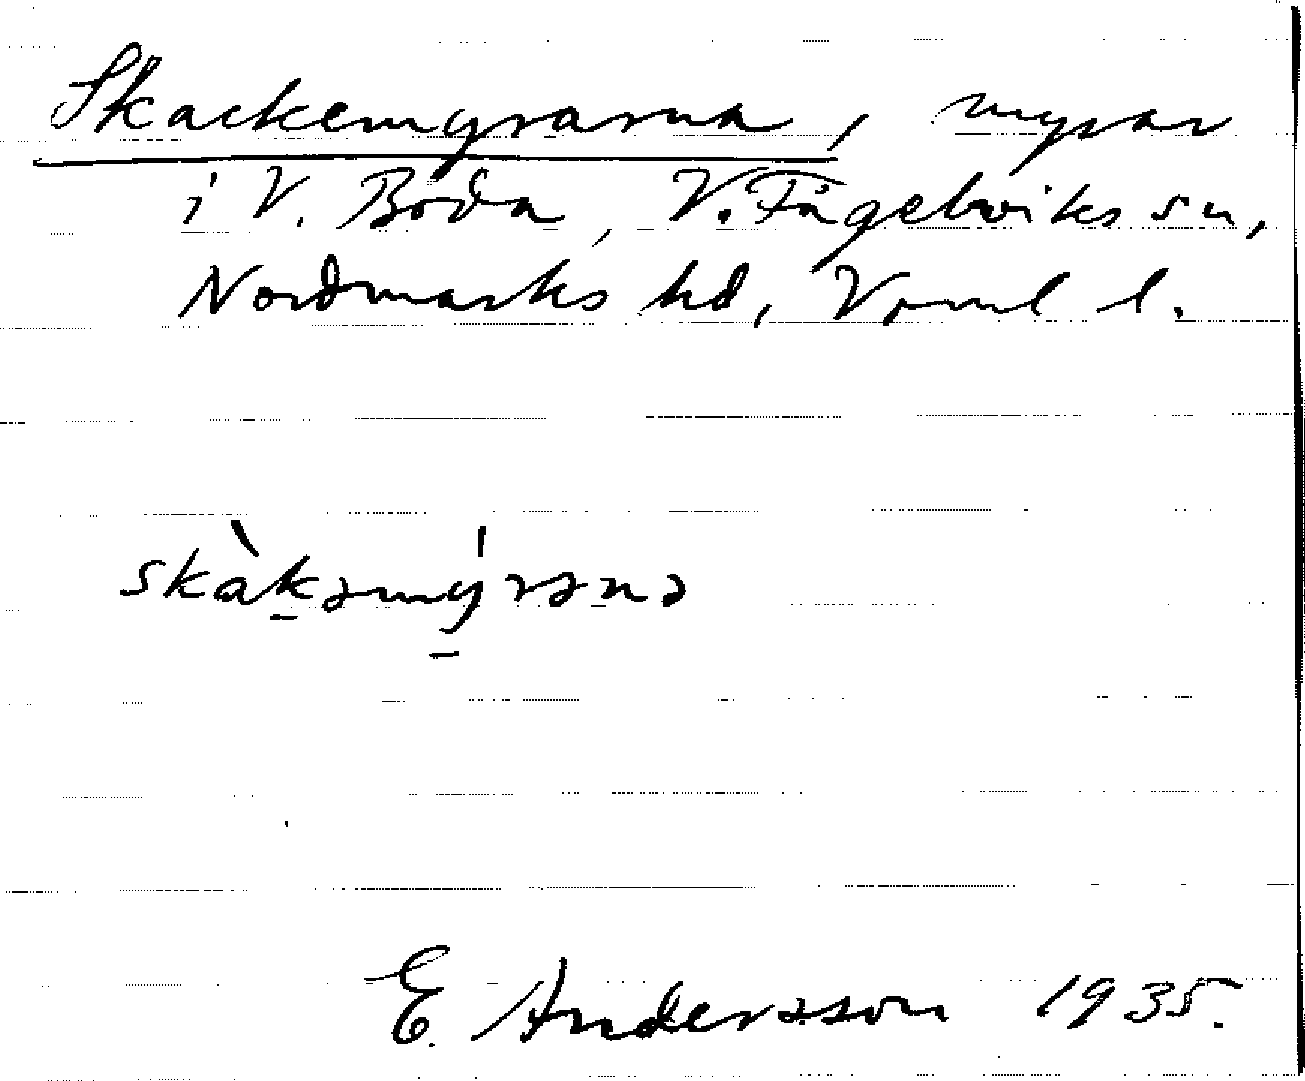 Skackemyrarna, myrar
i V. Boda, V. Fågelviks sn,
Nordmarks hd, Vrml l.
skàkəmýrənə
E. Andersson 1935.